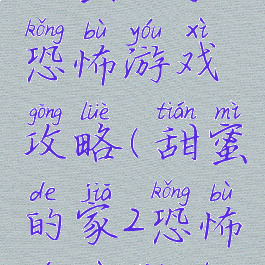 kǒng bù yóu xì
恐怖游戏
gōng lüè tián mì
攻略(甜蜜
de jiā kǒng bù
的家2恐怖